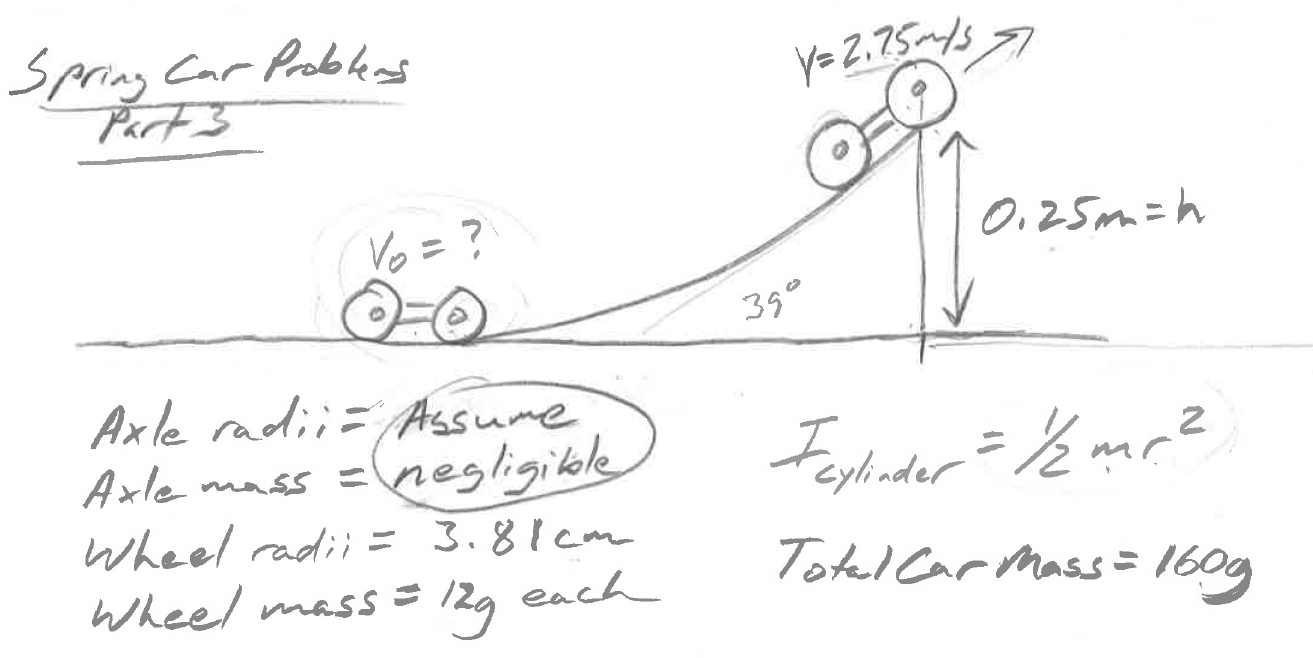 Spring Car Problems
Part 3
V=2.75m/s
V₀ = ?
0.25m=h
39°
Axle radii = Assume
Axle mass = negligible
Wheel radii = 3.81cm
Wheel mass = 12g each
I cylinder = 1/2 mr²
Total Car Mass = 160g